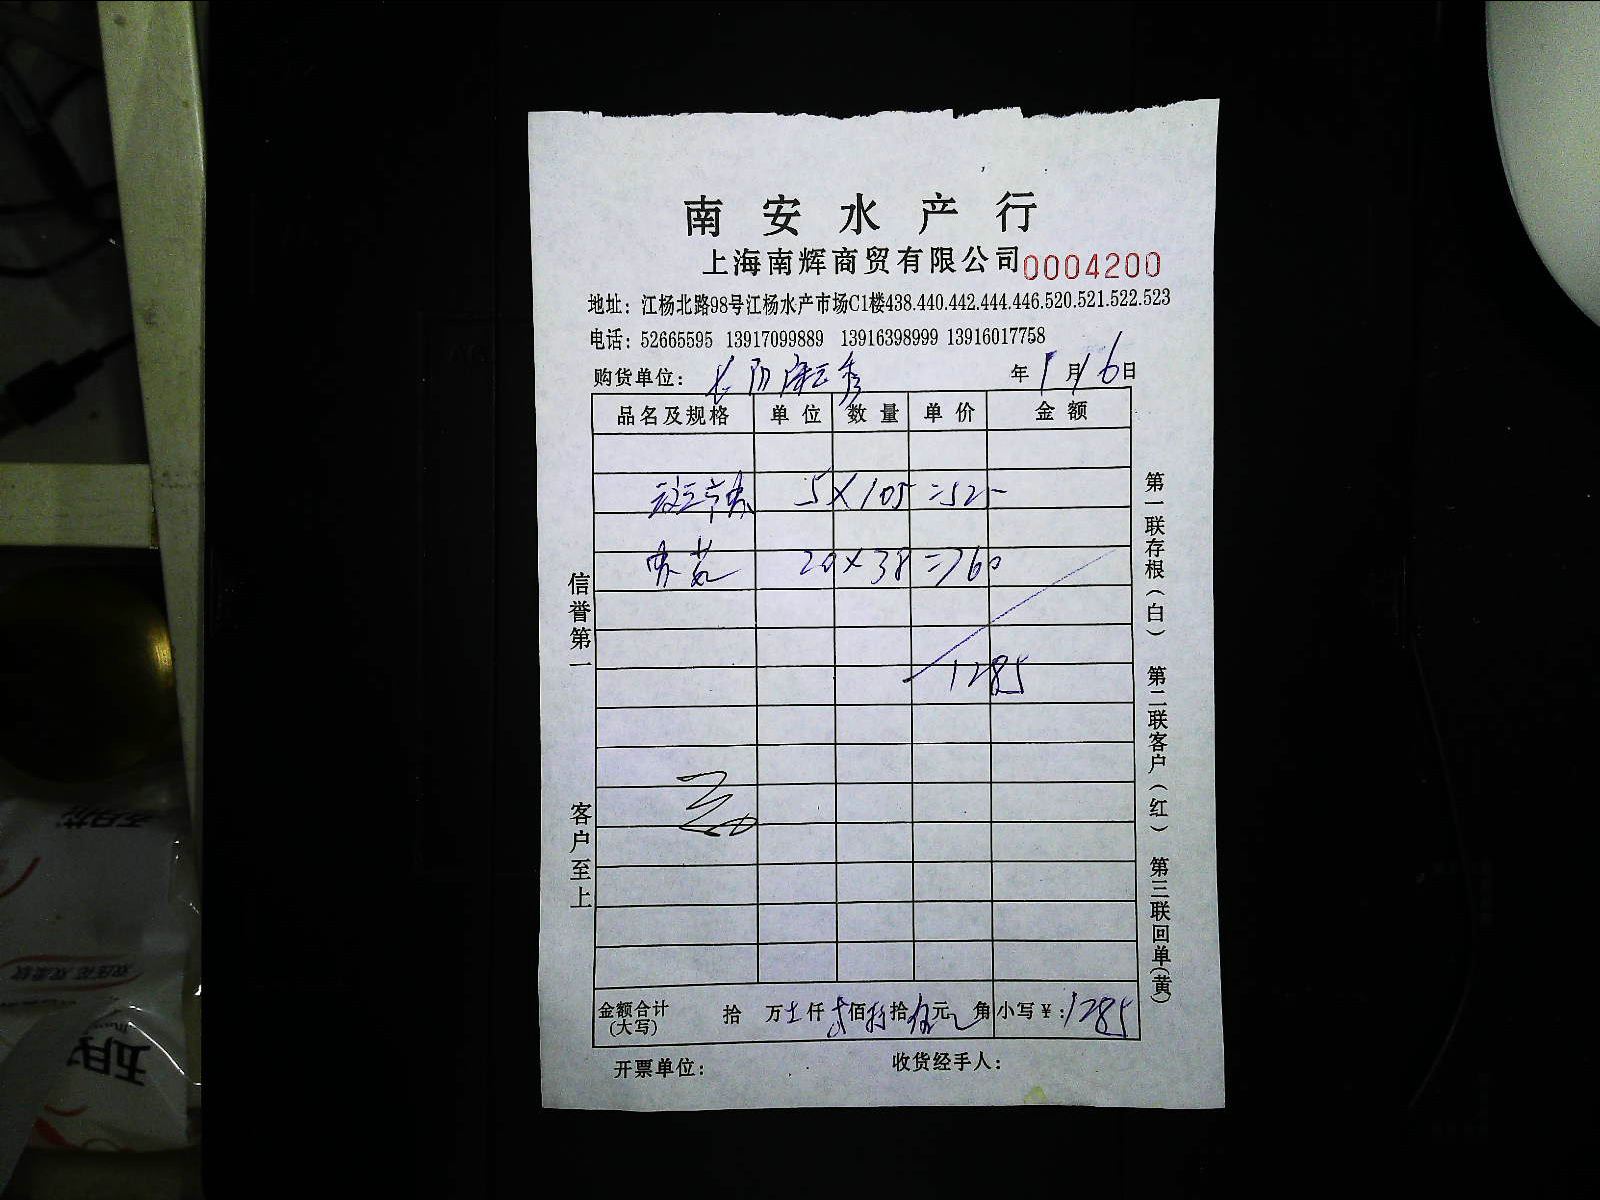 南安水产行
上海南辉商贸有限公司 0004200
地址：江杨北路98号江杨水产市场C1楼438.440.442.444.446.520.521.522.523
电话：52665595 13917099889 13916398999 13916017758
购货单位： 年 1 月 16 日
品名及规格 单位 数量 单价 金额
5 X 105 = 525-
20 X 38 = 760
1285
金额合计（大写） 拾 万 仟 佰 拾 伍 元 角 小写￥：1285
开票单位： 收货经手人：
信誉第一
客户至上
第一联存根（白） 第二联客户（红） 第三联回单（黄）